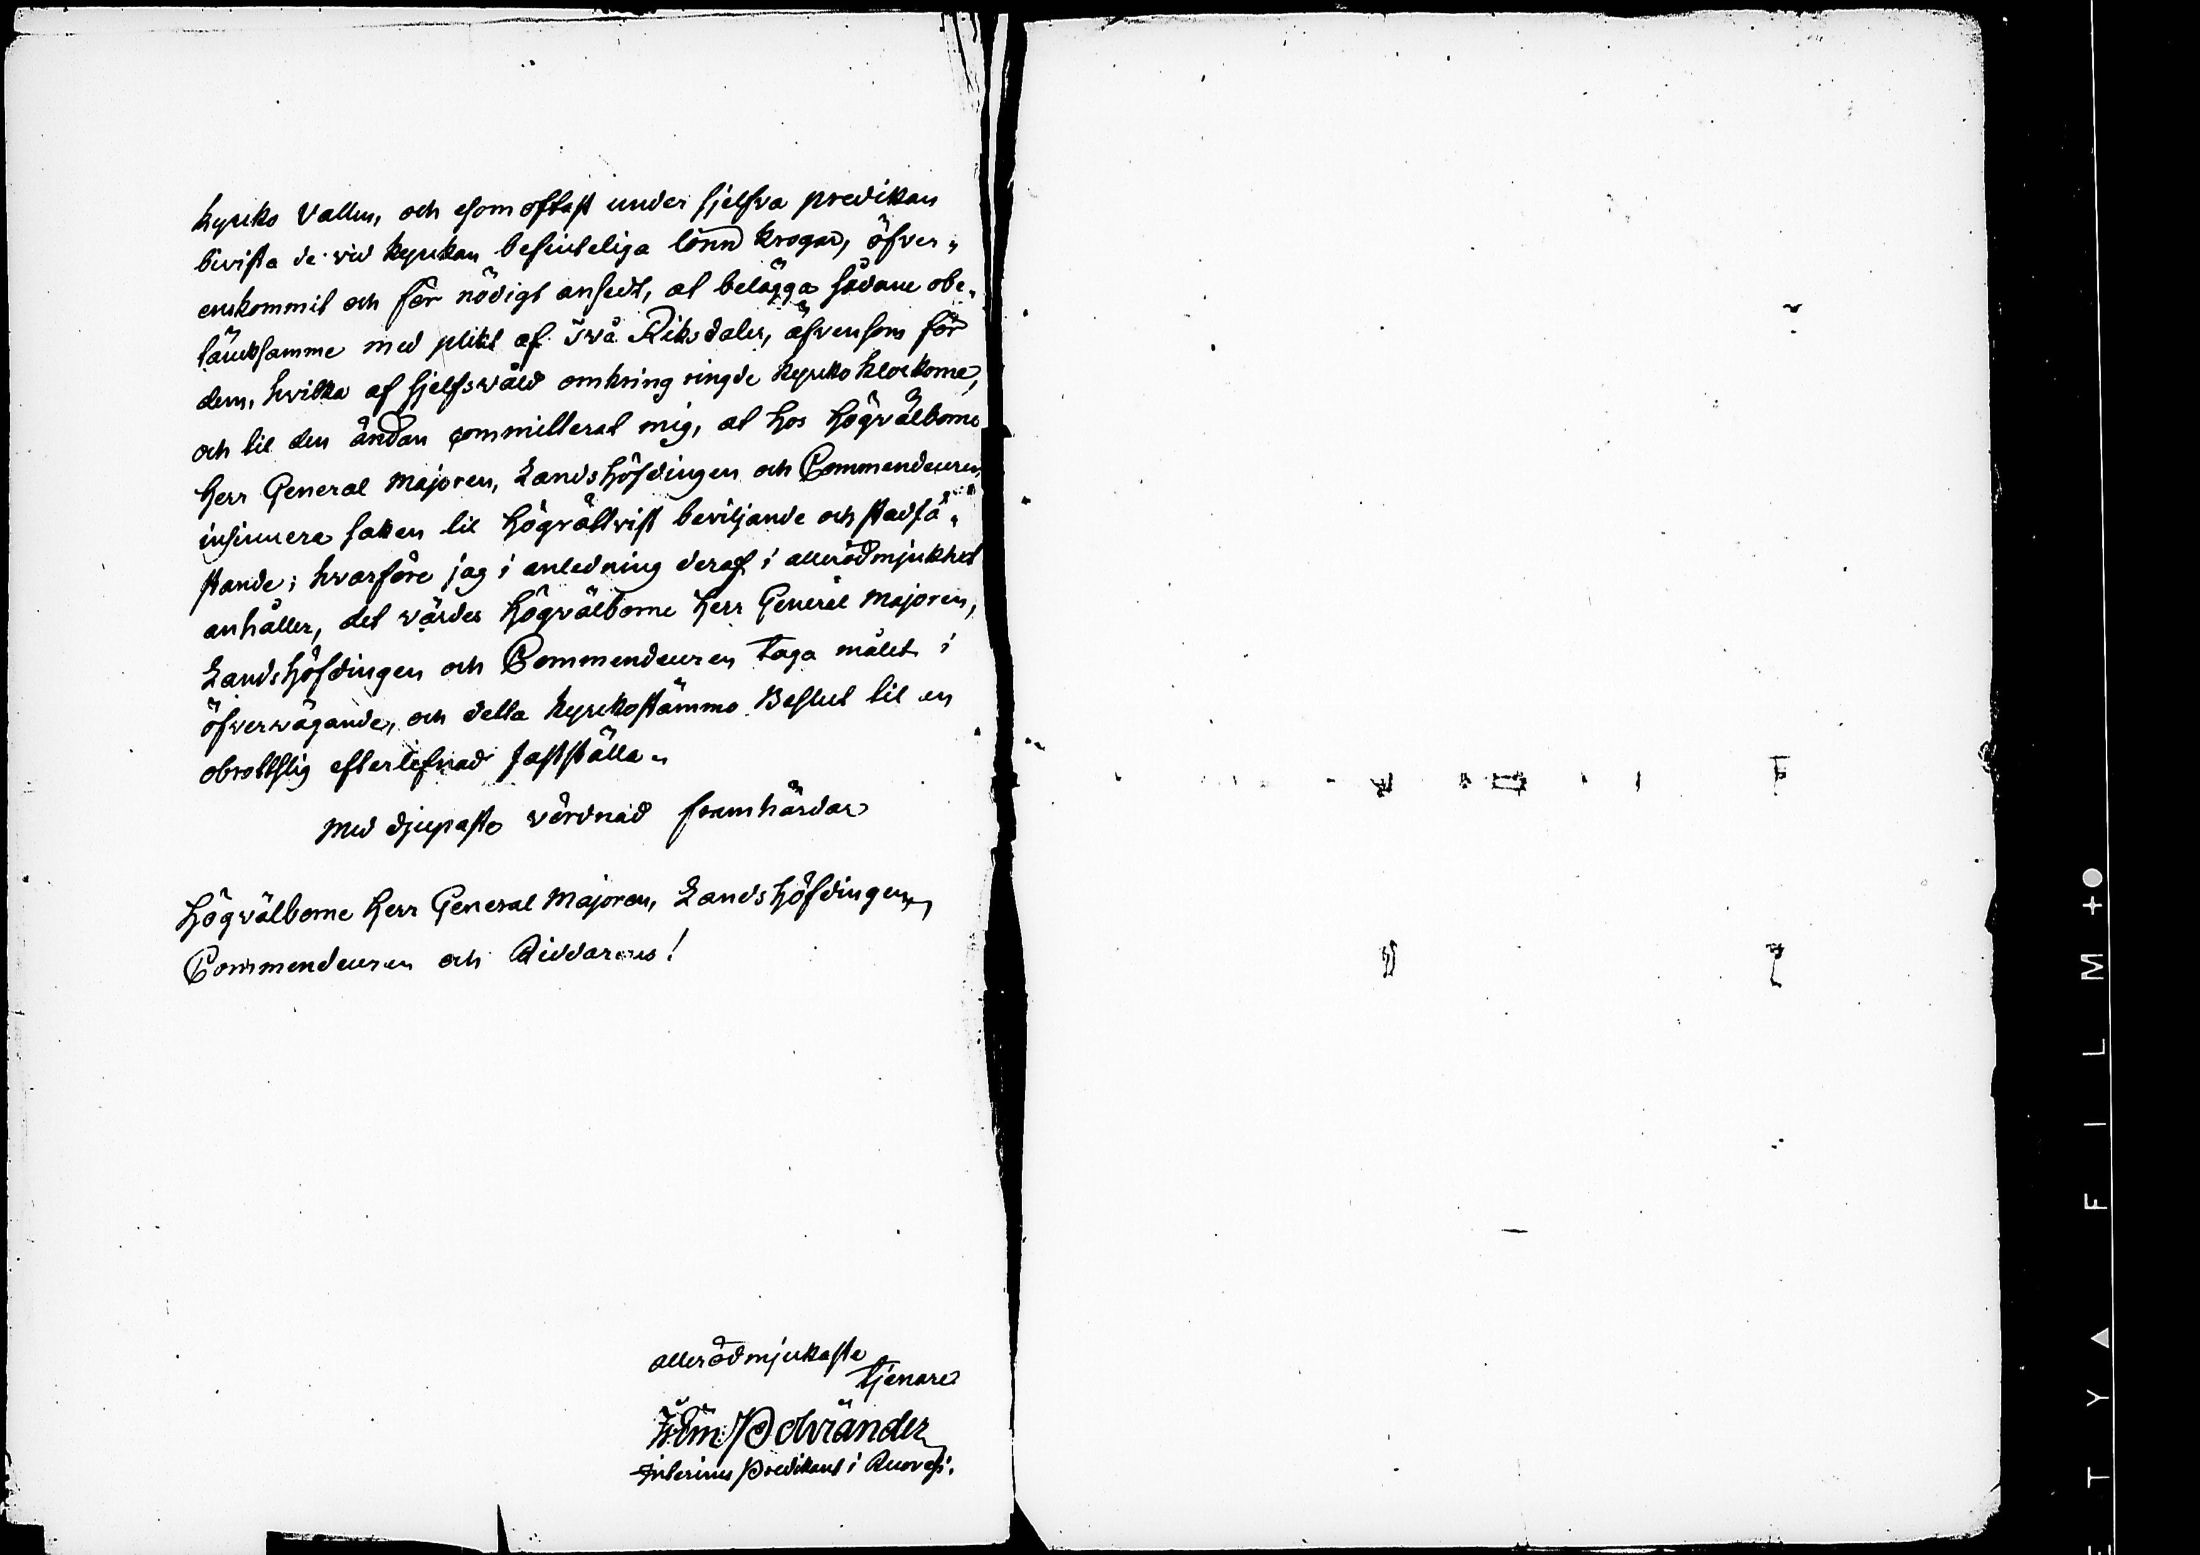 kyrko Vallen, och esomoftast under sjelfva predikan
bevista de vid kyrkan befinteliga lönn krogar, öfver„
enskommit och för nödigt ansedt, at belägga sådane obe„
tänksamme med plikt af Två Riksdaler, äfvensom för
dem, hvilka af sjelfsvåld omkring ringde kyrko klockorna,
och til den ändan committerat mig, at hos Högvälborne
Herr General Majoren, Landshöfdingen och Commendeuren
insinuera saken til högrättvist beviljande och stadfä„
stande; hvarföre jag i anledning deraf i allerödmjukhet
anhåller, det värdes Högvälborne Herr General Majoren,
Landshöfdingen och Commendeuren taga målet i
öfvervägande, och detta kyrkostämmo Beslut til en
obrottslig efterlefnad fastställa.
Med djupaste vördnad framhärdar
Högvälborne Herr General Majoren, Landshöfdingen,
Commendeuren och Riddarens!
allerödmjukaste
tjenare
Polviander
Interims Predikant i Ruovesi.
E T Y A F I L M